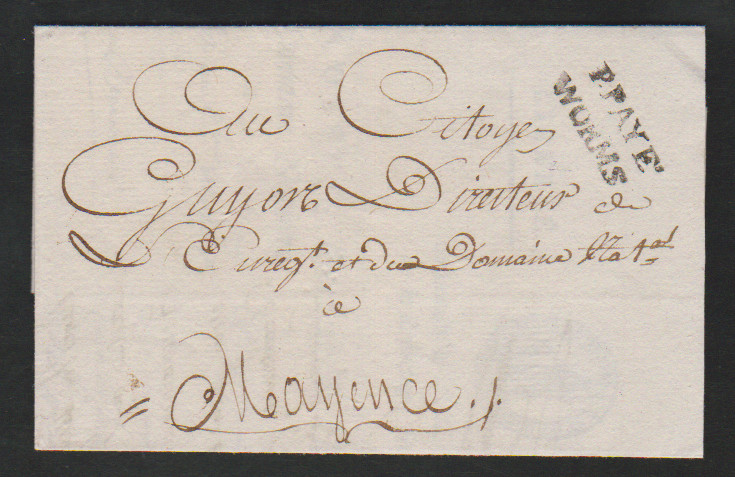 P.PAYÉ
WORMS
Au Citoyen
Guyon Directeur de
L'Enregt. et du Domaine Natal
à
Mayence